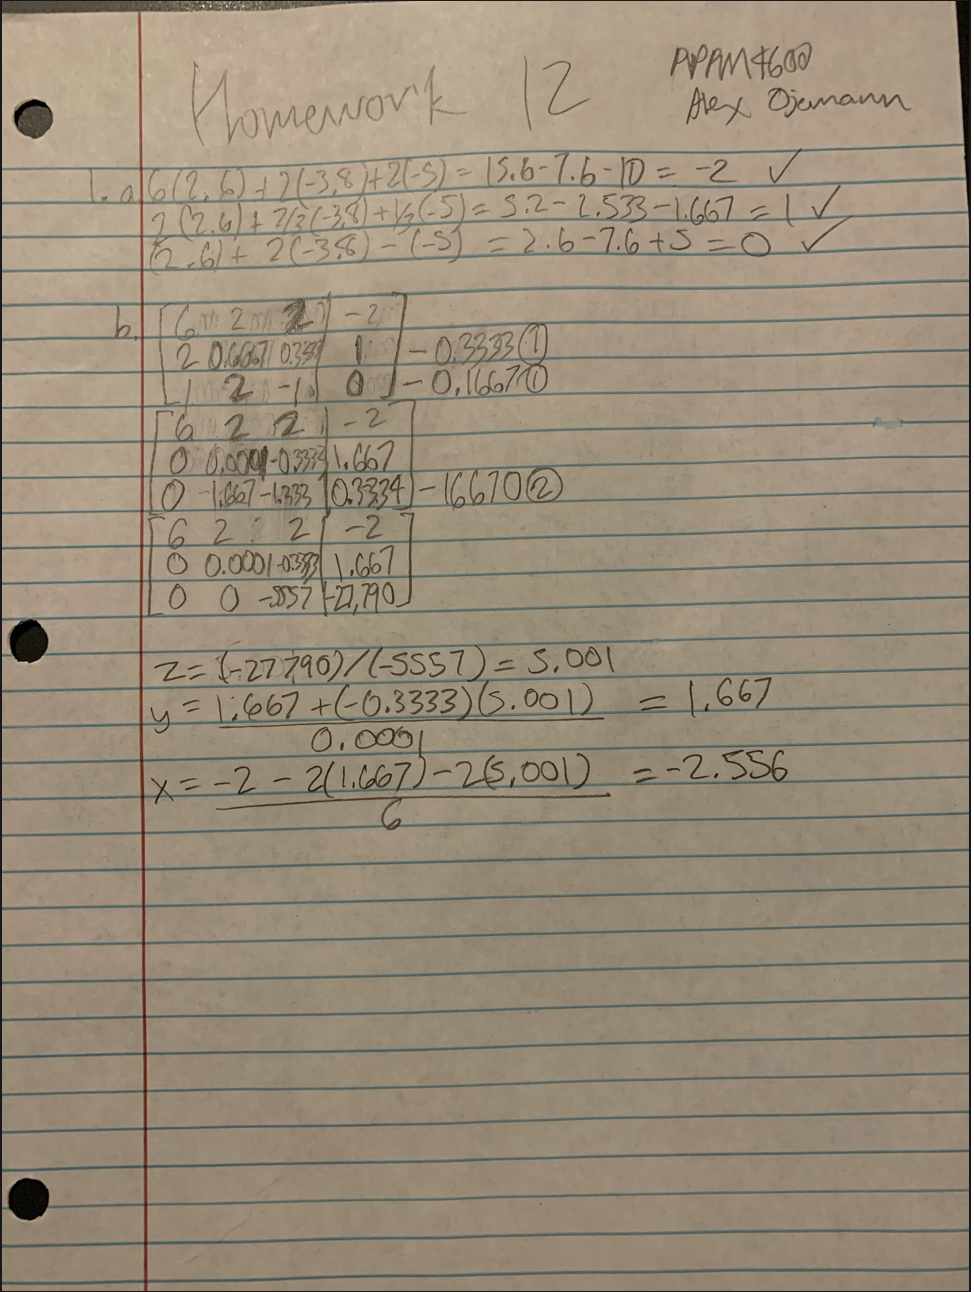 Homework 12
APPM4600
Alex Ojemann
1. a. 6(2.6) + 2(-3.8) + 2(-5) = 15.6 - 7.6 - 10 = -2 ✓
2(2.6) + 2/3(-3.8) + 1/3(-5) = 5.2 - 2.533 - 1.667 = 1 ✓
(2.6) + 2(-3.8) - (-5) = 2.6 - 7.6 + 5 = 0 ✓
b. [6 2 2 | -2]
[2 0.6667 0.3333 | 1] - 0.3333①
[1 2 -1 | 0] - 0.1667①
[6 2 2 | -2]
[0 0.0001 -0.3333 | 1.667]
[0 1.667 -1.333 | 0.3334] - 16670②
[6 2 2 | -2]
[0 0.0001 -0.3333 | 1.667]
[0 0 -5557 | -27,790]
z = (-27790)/(-5557) = 5.001
y = 1.667 + (-0.3333)(5.001) = 1.667
0.0001
x = -2 - 2(1.667) - 2(5.001) = -2.556
6